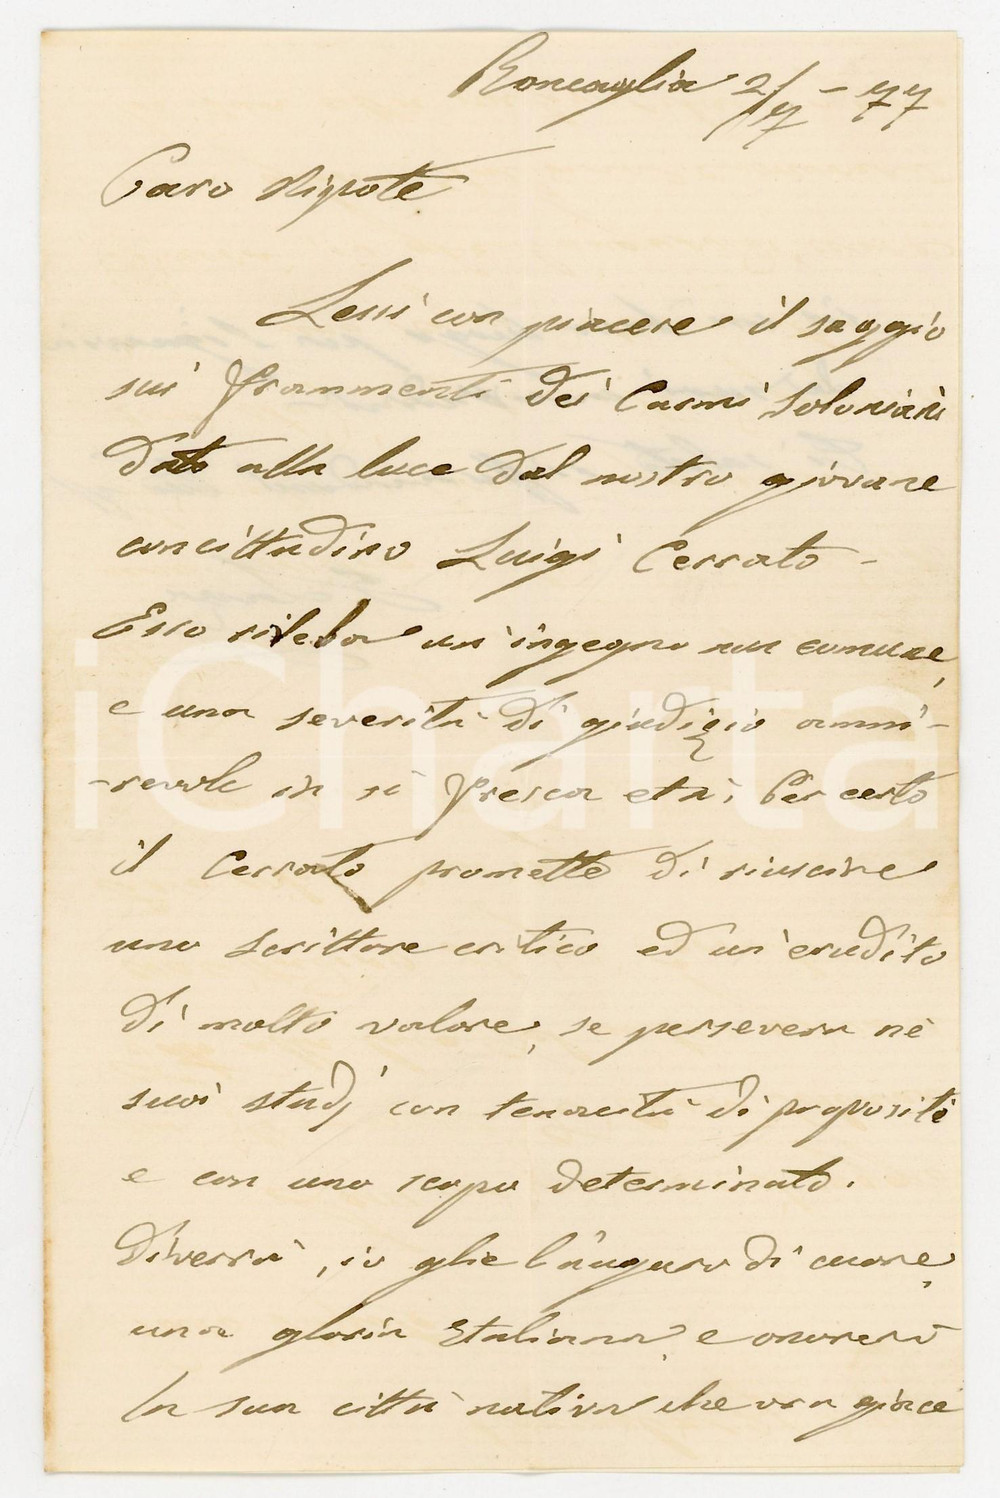 Roncaglia 2/7 - 77
Caro Nipote
Lessi con piacere il saggio
sui frammenti dei Carmi Soloniani
dato alla luce dal nostro giovane
concittadino Luigi Cerrato -
Esso rivela un ingegno non comune,
e una severità di giudizio ammi-
-revole in sì fresca età; Per certo
il Cerrato promette di riuscire
uno scrittore critico ed un erudito
di molto valore, se persevera ne
suoi studj con tenacità di propositi
e con uno scopo determinato.
Diverrà, io glie l'auguro di cuore,
una gloria Italiana, e onorerà
la sua città nativa che ora giace
iCharta